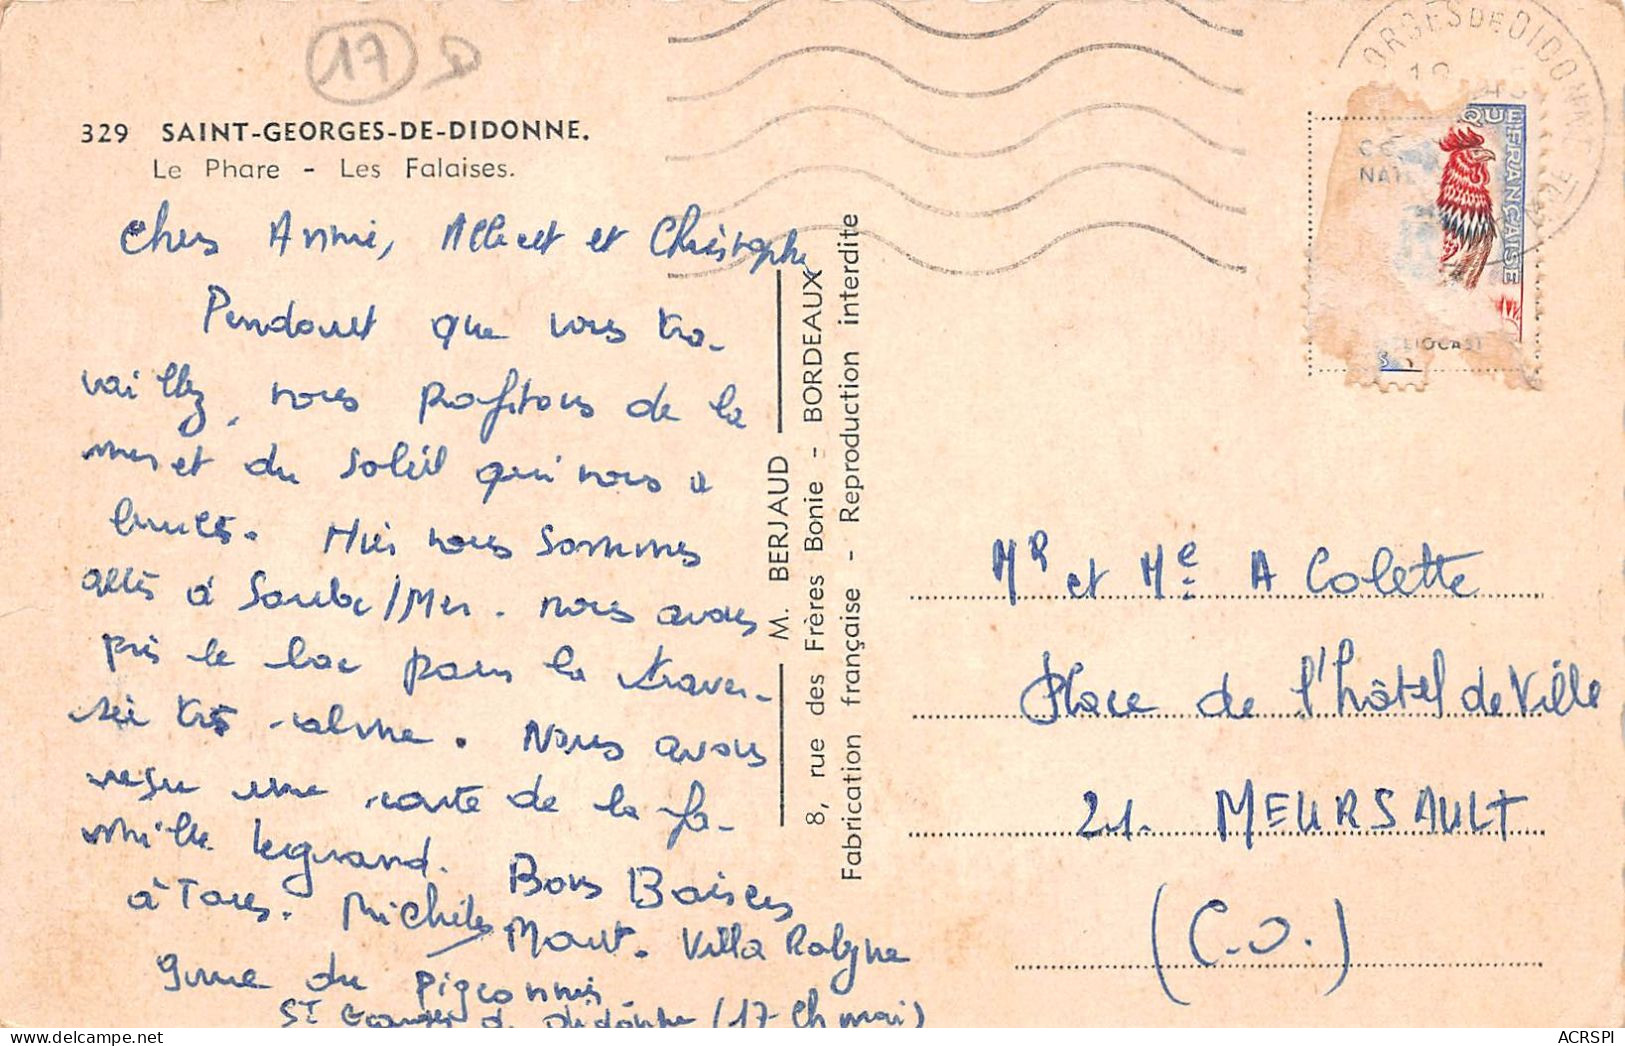 17
329 SAINT-GEORGES-DE-DIDONNE.
Le Phare - Les Falaises.
Chers Annie, Albert et Christophe
Pendant que vous tra-
vaillez, nous profitons de la
mer et du soleil qui nous a
brulés. Hier nous sommes
allés à Soulac/Mer. nous avons
pris le bac pour la traver-
sée très calme. Nous avons
reçu une carte de la fa-
mille Legrand. Bons Baisers
à Tous. Michèle
Villa
du pigeonnier
St Georges de Didonne (17 Ch mar)
M. BERJAUD
8, rue des Frères Bonie - BORDEAUX
Fabrication française - Reproduction interdite
ORGES DE DIDONNE
QUE FRANÇAISE
Mr et Me A Colette
Place de l'hôtel de Ville
21. MEURSAULT
(C.O.)
ACRSPI